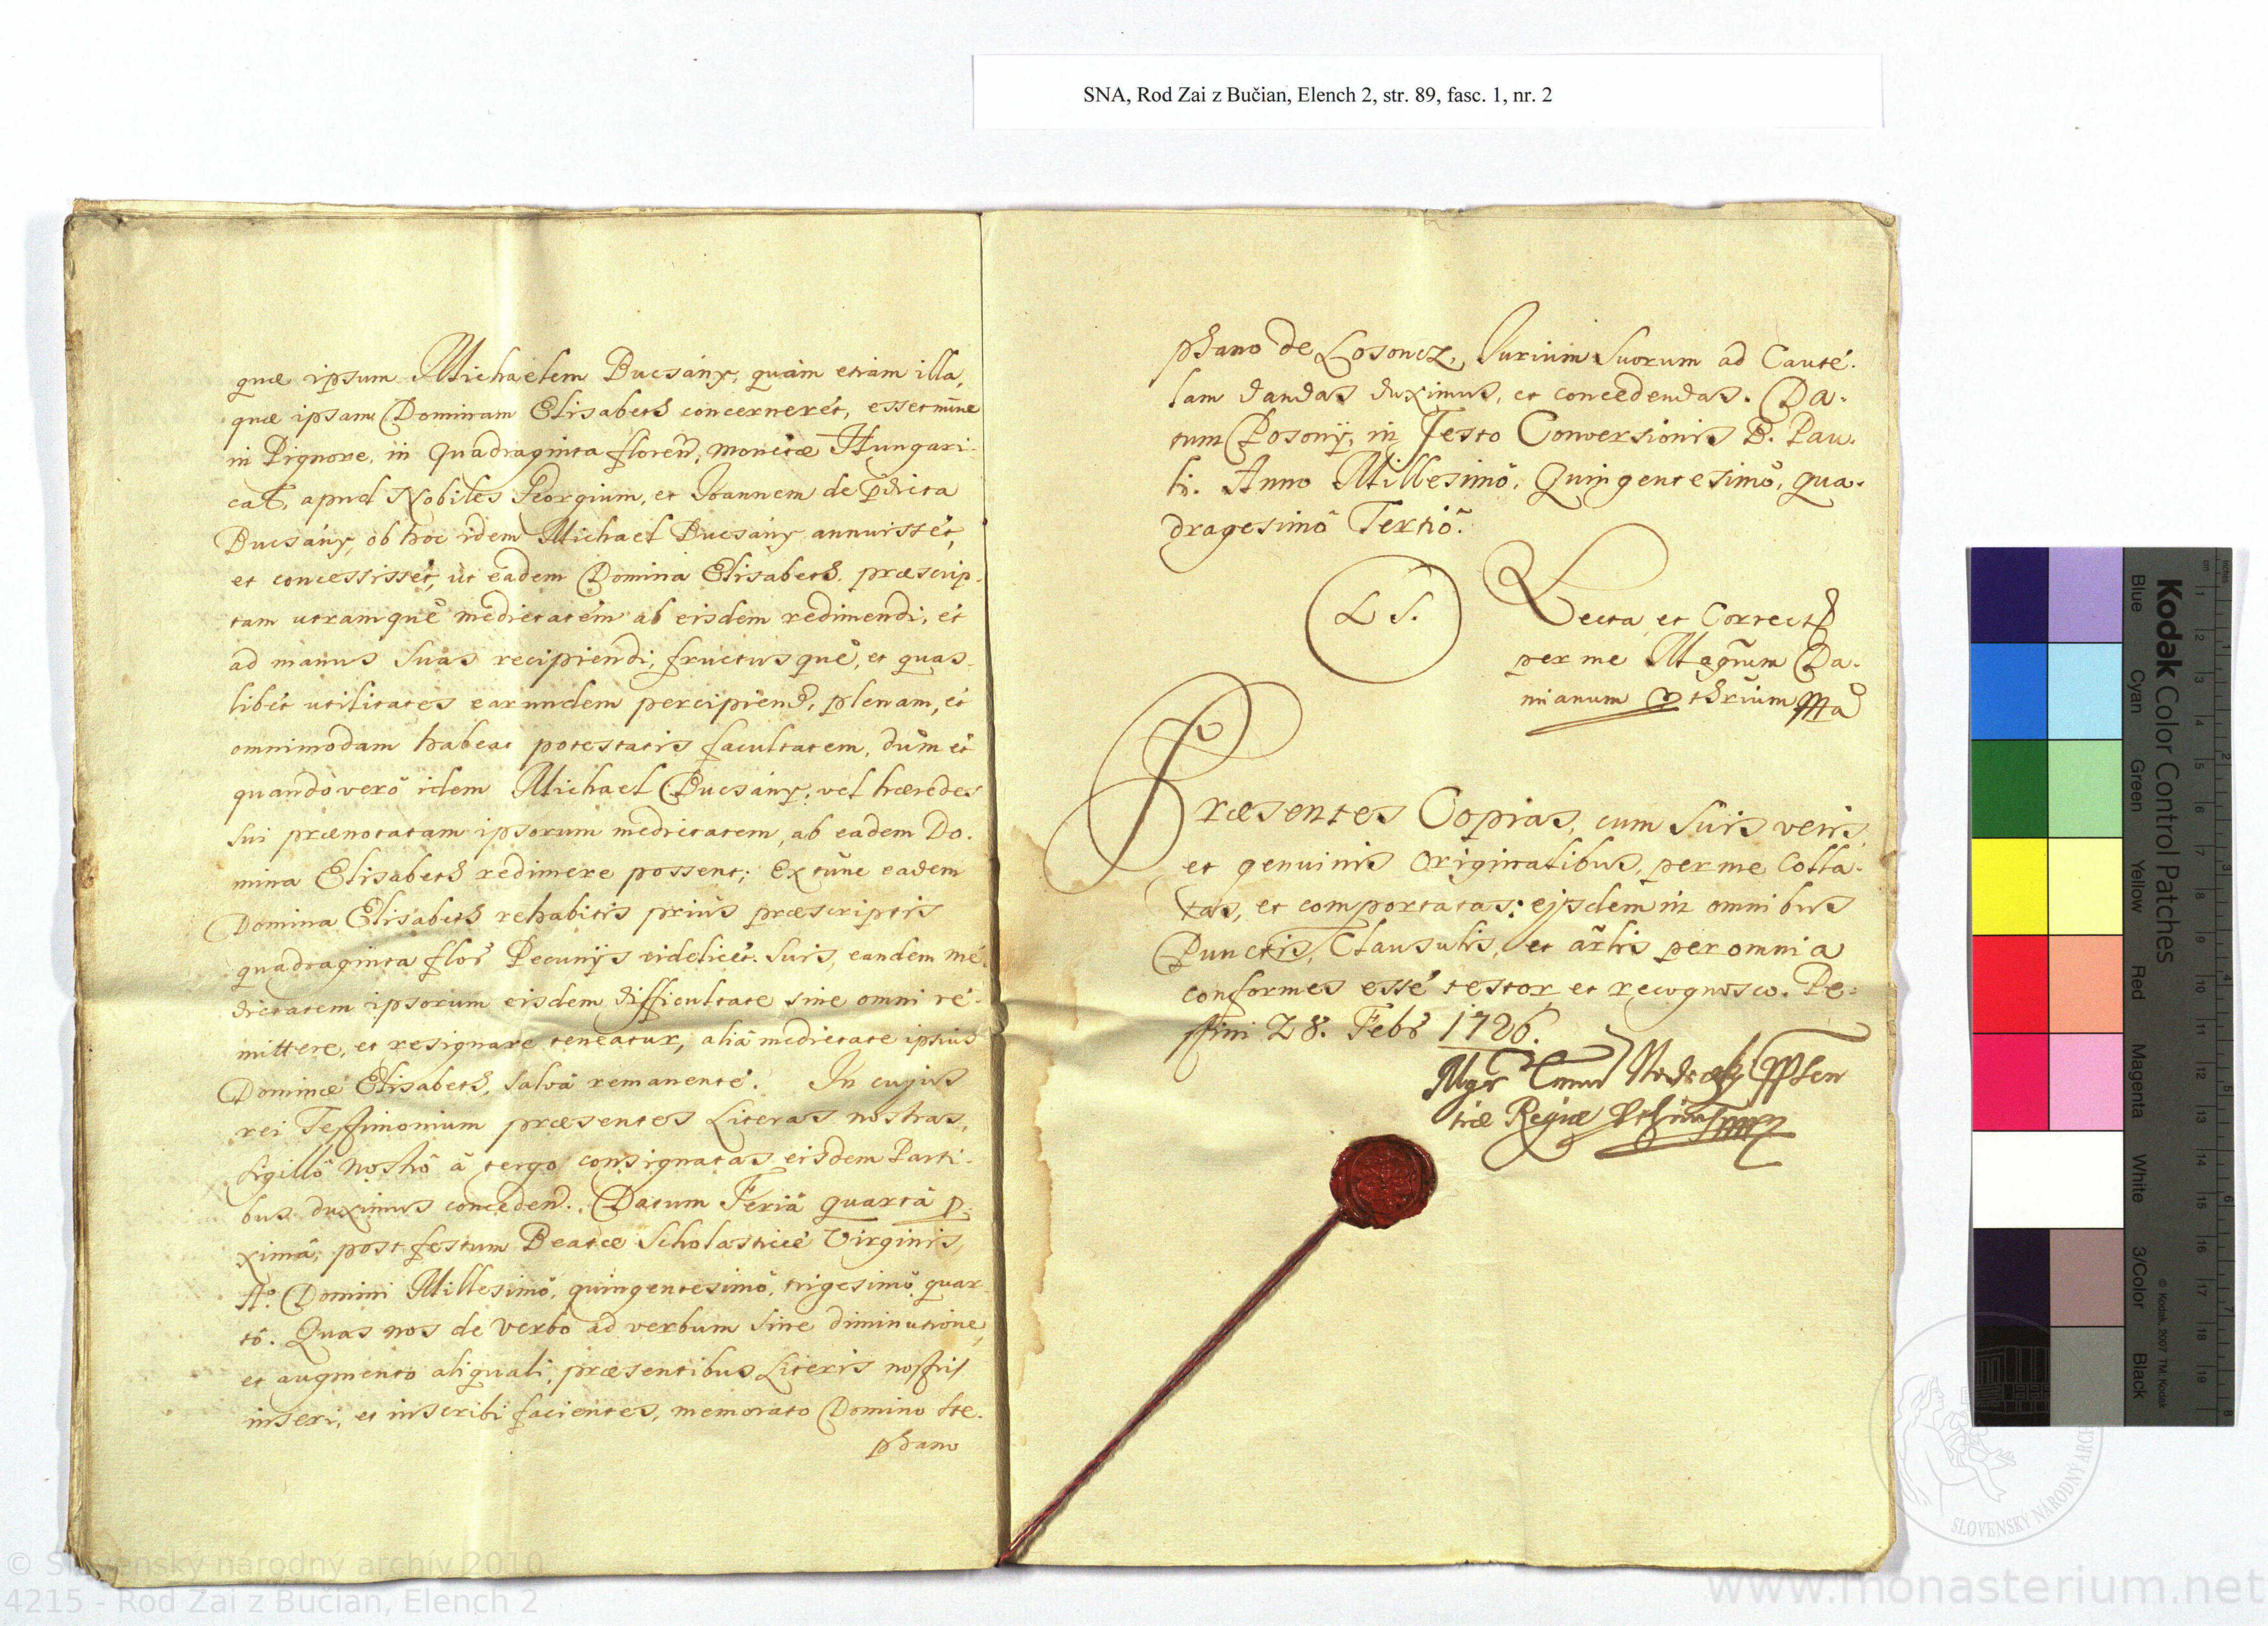 SNA, Rod Zai z Bučian, Elench 2, str. 89, fasc. 1, nr. 2
quæ ipsum Michaelem Bucsány, quàm etiàm illa,
quæ ipsam Dominam Elisabeth concernerét, esset nūnc
in Pignore, in quadraginta floreñ, monetæ Hungari-
cał, apud Nobiles Georgium, et Joannem de p̃dicta
Bucsány, ob hoc idem Michael Bucsány annuissét,
et concessissét, ut eadem Domina Elisabeth præscrip-
tam utramquè medietatém ab eisdem redimendi, ét
ad manus suas recipiendi, fructusquè, et quas-
libét utilitates earundem percipiend, plenam, ét
omnimodam habeat potestatis facultatem, dum ét
quandò verò idem Michael Bucsány, vel hæredes
sui prænotatam ipsorum medietatem, ab eadem Do-
mina Elisabeth redimere possent; Ex tūnc eadem
Domina Elisabeth rehabitis priùs præscriptis
quadraginta flor Pecunijs videlicét suis, eandem me-
dietatem ipsorum eisdem difficultate sine omni re-
mittere, et resignare teneatur, aliâ medietate ipsius
Dominæ Elisabeth, salvâ remanenté. In cujus
rei Testimonium præsentes Literas nostras,
sigillô nostrô à tergo consignatas eisdem Parti-
bus duximus conceden. Datum Feriâ quartâ p-
ximâ, post festum Beatæ Scholasticæ Virginis,
Aº. Domini Millesimô, quingentesimô, trigesimô quar
tô. Quas nos de verbo ad verbum sine diminutione,
et augmento aliquali, præsentibus Literis nostris
inseri, et inscribi facientes, memorato Domino Ste-
phano
phano de Losoncz, Jurium Suorum ad Cauté-
lam dandas duximus, et concedendas. Da-
tum Posonÿ, in Festo Conversionis B. Pau-
li. Anno Millesimô, Quingentesimô, qua-
dragesimô Tertiô.
L S.
Lecta et Correcta
per me Magr̃um Da-
mianum Mã
Præsentes Copias, cum Suis veris,
et genuinis Originalibus, per me Colla-
tas, et comportatas; ejsdem in omnibus
Punctis, Clausulis, et ar̃lis per omnia
conformes essé testor et recognosco. Pe-
stini 28. Febr 1726.
Mgr
triæ Regiæ
Kodak Color Control Patches
Blue Cyan Green Yellow Red Magenta White 3/Color Black
© Kodak, 2007 TM: Kodak
SLOVENSKÝ NÁRODNÝ ARCH
© Slovenský národný archív 2010
4215 - Rod Zai z Bučian, Elench 2
www.monasterium.net